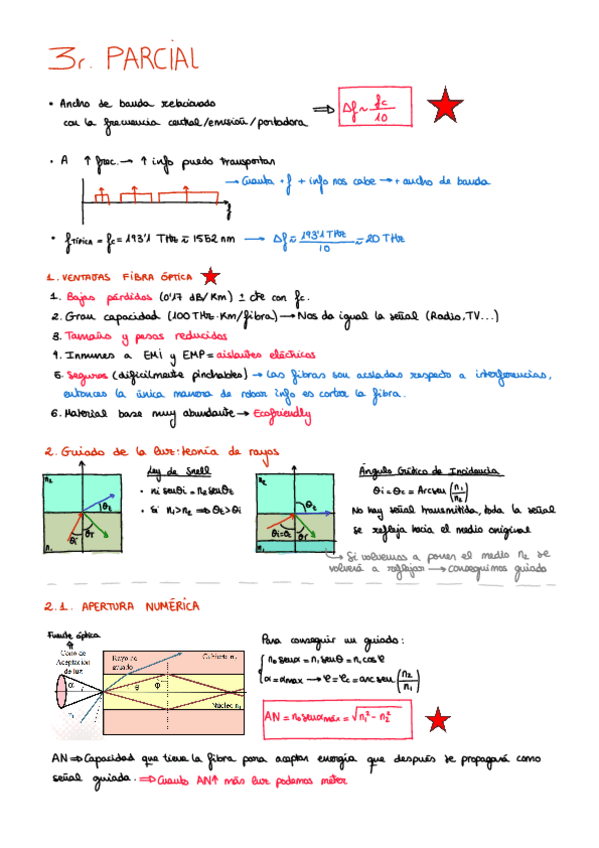 3r. PARCIAL
• Ancho de banda relacionado
con la frecuencia central/emisión/portadora ⇒ Δf ~ fc/10
• A ↑ frec. → ↑ info puedo transportar
→ Cuanta + f + info nos cabe → + ancho de banda
f
• fTÍPICA = fc = 193'1 THz ≈ 1552 nm → Δf ≈ 193'1 THz/10 ≈ 20 THz
1. VENTAJAS FIBRA ÓPTICA
1. Bajas pérdidas (0'17 dB/Km) ± cte con fc.
2. Gran capacidad (100 THz·Km/fibra) → Nos da igual la señal (Radio, TV...)
3. Tamaño y pesos reducidos
4. Inmunes a EMI y EMP = aislantes eléctricos
5. Seguros (difícilmente pinchables) → Las fibras son aisladas respecto a interferencias,
entonces la única manera de robar info es cortar la fibra.
6. Material base muy abundante → Ecofriendly
2. Guiado de la luz: teoría de rayos
n2
θt
θi θr
n1
Ley de Snell
• ni senθi = n2 senθt
• Si n1 > n2 ⇒ θt > θi
n2
θt
θi=θc θr
n1
Ángulo Crítico de Incidencia
θi = θc = Arcsen (n2/n1)
No hay señal transmitida, toda la señal
se refleja hacia el medio original
→ Si volvemos a poner el medio n2 se
volverá a reflejar → conseguimos guiado
2.1. APERTURA NUMÉRICA
Fuente óptica
Cono de
Aceptación
de luz
Rayo no
guiado
Cubierta n2
α
θ
Φ
Núcleo n1
Para conseguir un guiado:
n0 senα = n1 senθ = n1 cos φ
α = αmax → φ = φc = arcsen (n2/n1)
AN = n0 senαmáx = √n1² - n2²
AN ⇒ Capacidad que tiene la fibra para aceptar energía que después se propagará como
señal guiada. ⇒ Cuanto AN↑ más luz podemos meter